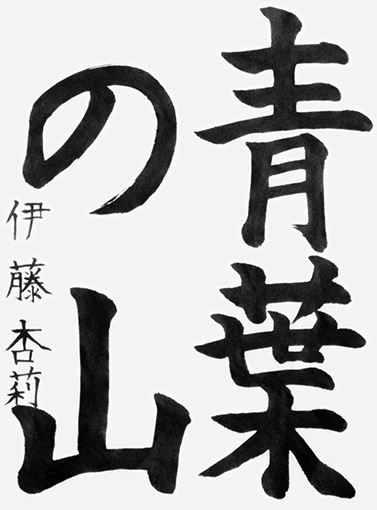 青葉
の山
伊藤杏莉